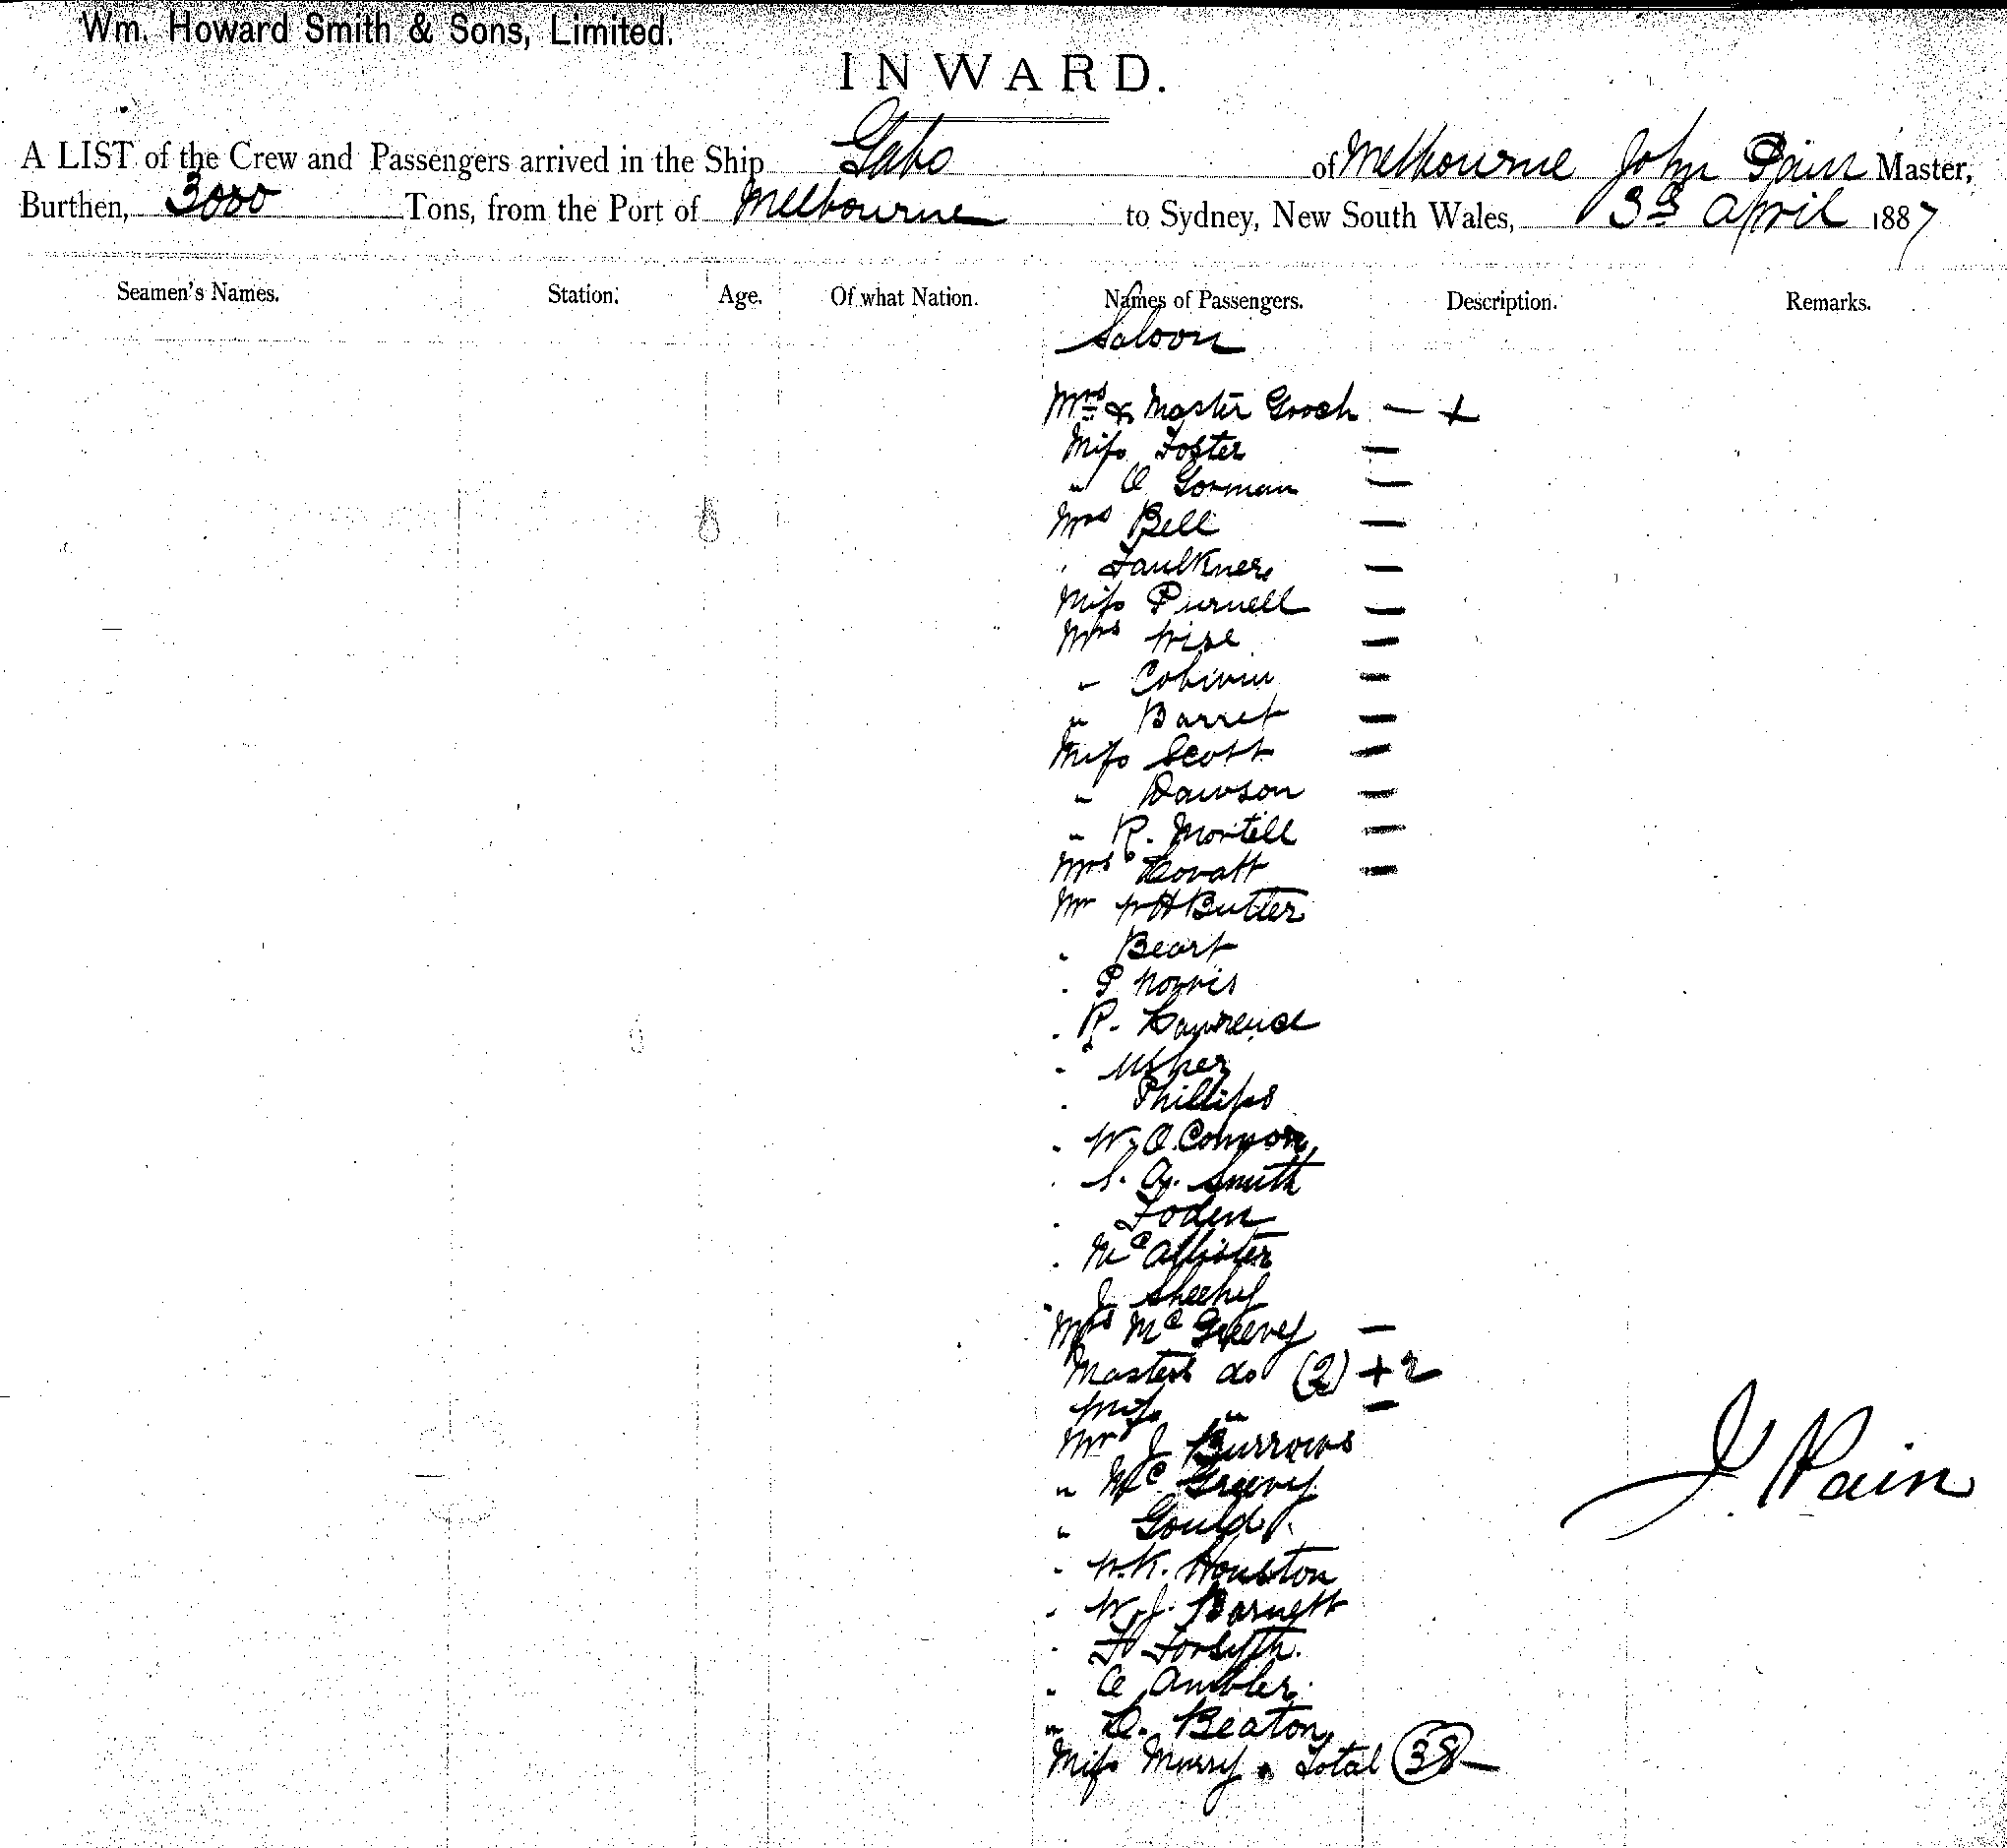 Wm. Howard Smith & Sons, Limited.
INWARD.
A LIST of the Crew and Passengers arrived in the Ship Gabo of Melbourne John Pain Master,
Burthen, 3000 Tons, from the Port of Melbourne to Sydney, New South Wales, 3rd April 1887
Seamen's Names. Station. Age. Of what Nation. Names of Passengers. Description. Remarks.
Saloon
Mrs & Master Gooch — +
Miss Foster —
" O Gorman —
Mrs Bell —
" Faulkner —
Miss Purnell —
Mrs Wise —
" —
" Barret —
Miss Scott —
" Dawson —
" R. Mortell —
Mrs Lovatt —
Mr W H Butler
" Beart
" P Norris
" R. Lawrence
" Usher
" Phillips
" W. O.Connor
" S. A. Smith
" Foden
" McAllister
" J Sheehy
Mrs McGreevy —
Masters do (2) + 2
Miss " —
Mr J Burrows
" McGreevy
" Gould
" W.K. Houston
" W.J. Barnett
" Forsyth.
" C Ambler
" D. Beaton
Miss Murry. Total 38 —
J Pain